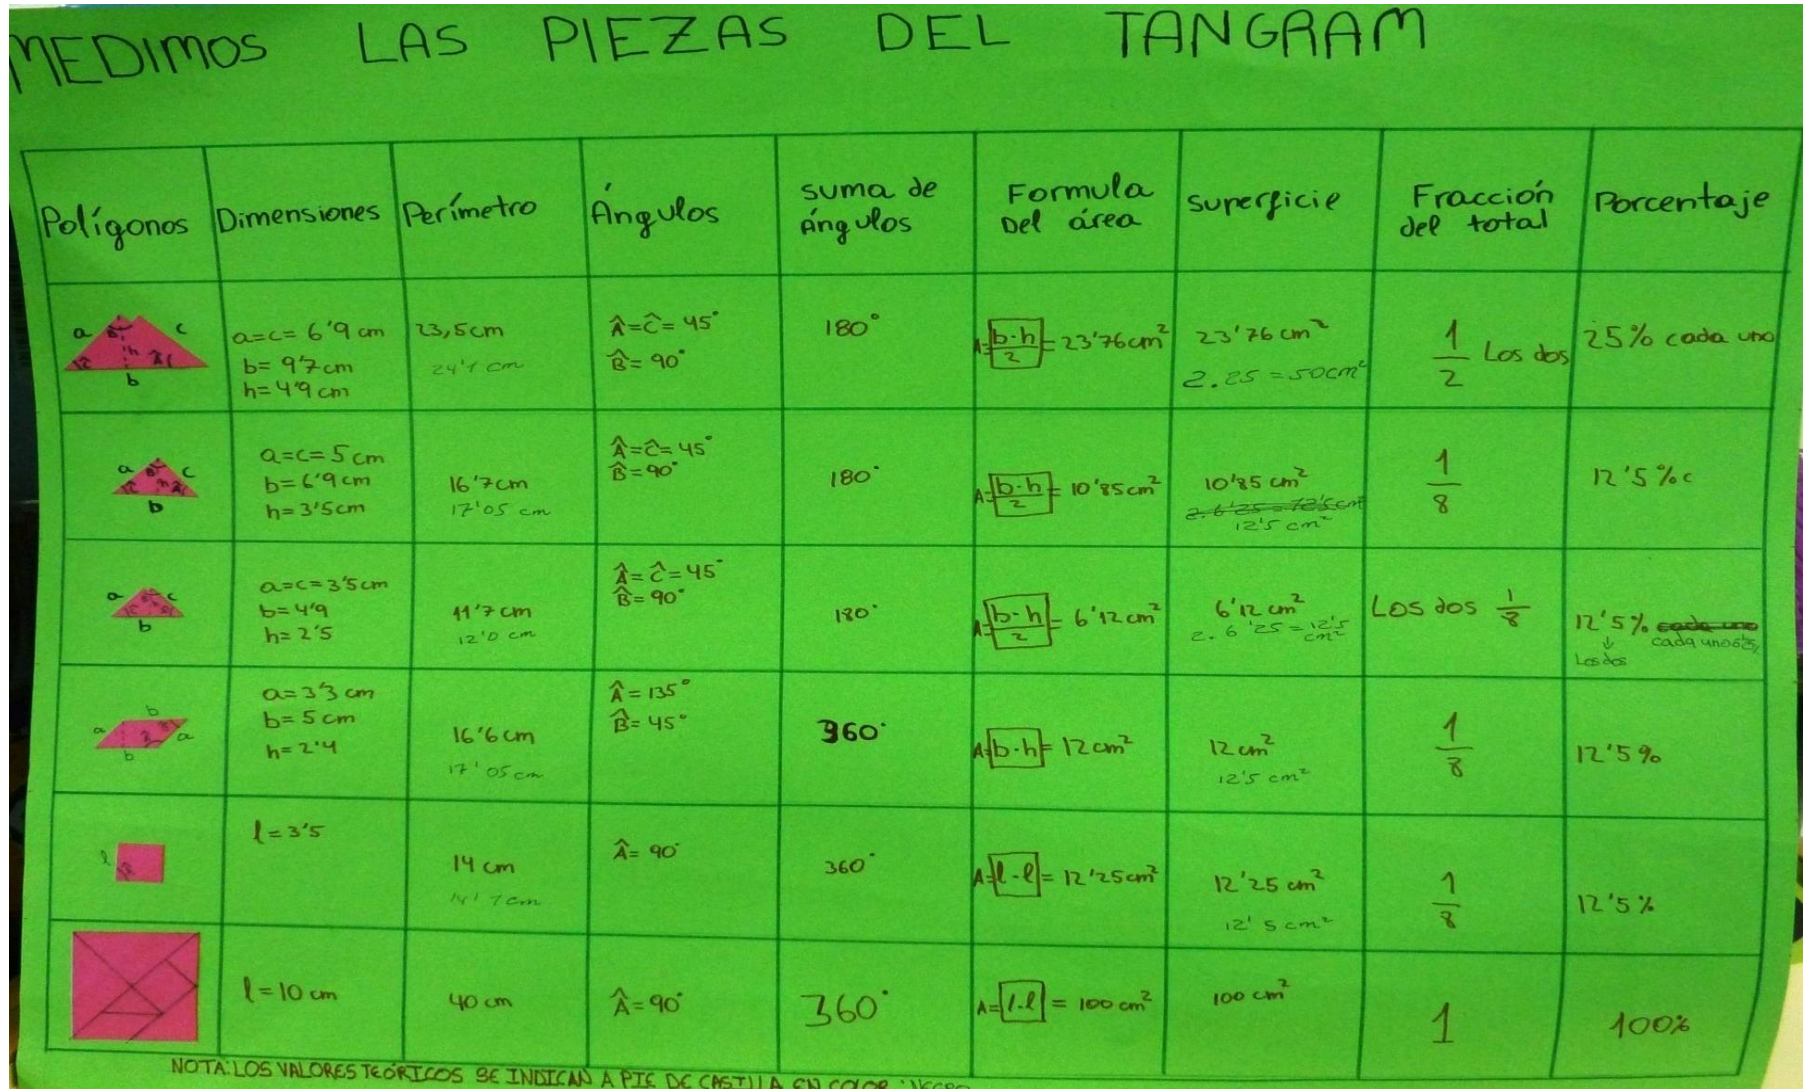 MEDIMOS LAS PIEZAS DEL TANGRAM
Polígonos
Dimensiones
Perímetro
Ángulos
suma de
ángulos
Formula
Del área
superficie
Fracción
del total
Porcentaje
a
c
h
b
a=c= 6'9 cm
b= 9'7cm
h= 4'9 cm
23,5cm
24'1 cm
Â=Ĉ= 45°
B̂= 90°
180°
A= b·h/2 = 23'76cm²
23'76 cm²
2.25 = 50cm²
1/2 Los dos
25% cada uno
a
c
h
b
a=c= 5 cm
b= 6'9 cm
h= 3'5cm
16'7cm
17'05 cm
Â=Ĉ= 45°
B̂= 90°
180°
A= b·h/2 = 10'85cm²
10'85 cm²
12'5 cm²
1/8
12'5%c
a
c
b
a=c=3'5cm
b= 4'9
h= 2'5
11'7 cm
12'0 cm
Â= Ĉ= 45°
B̂= 90°
180°
A= b·h/2 = 6'12cm²
6'12 cm²
2. 6'25 = 12'5
cm²
Los dos 1/8
12'5% cada uno
↓ cada uno
Los dos
b
a
a
b
a= 3'3 cm
b= 5 cm
h= 2'4
16'6 cm
17'05 cm
Â= 135°
B̂= 45°
360°
A= b·h = 12cm²
12cm²
12'5 cm²
1/8
12'5%
l
l= 3'5
14 cm
14'1 cm
Â= 90°
360°
A= l·l = 12'25cm²
12'25 cm²
12'5 cm²
1/8
12'5%
l= 10 cm
40 cm
Â= 90°
360°
A= l.l = 100 cm²
100 cm²
1
100%
NOTA: LOS VALORES TEÓRICOS SE INDICAN A PIE DE CASILLA EN COLOR NEGRO